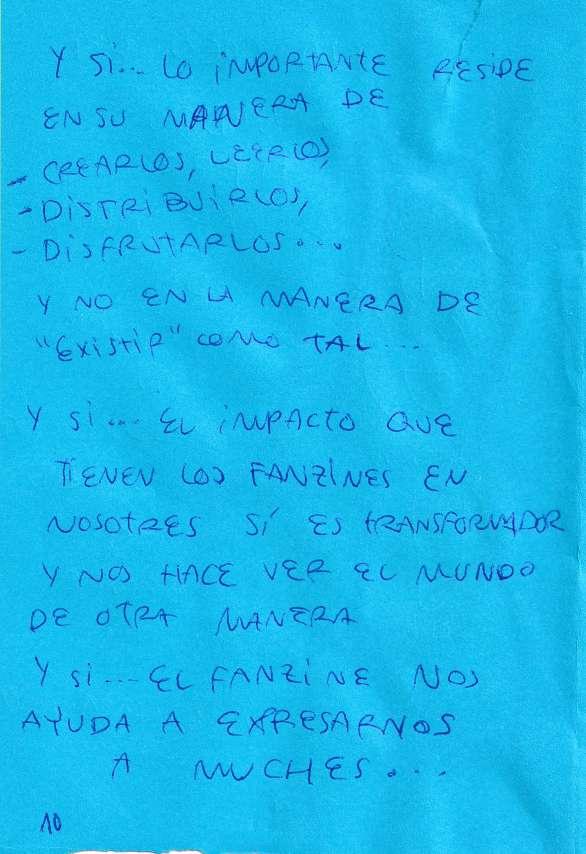 Y Si... LO iMPORTANTE RESiDE
EN SU MANERA DE
- CREARLOS, LEERLOS,
- DiSTRiBUiRLOS,
- DiSFRUTARLOS...
Y NO EN LA MANERA DE
"Existir" COMO TAL...
Y Si... EL iMPACTO QUE
TiENEN LOS FANZiNES EN
NOSOTRES SÍ ES tRANSFORMADOR
Y NOS HACE VER EL MUNDO
DE OTRA MANERA
Y Si... EL FANZiNE NOS
AYUDA A EXPRESARNOS
A MUCHES...
10